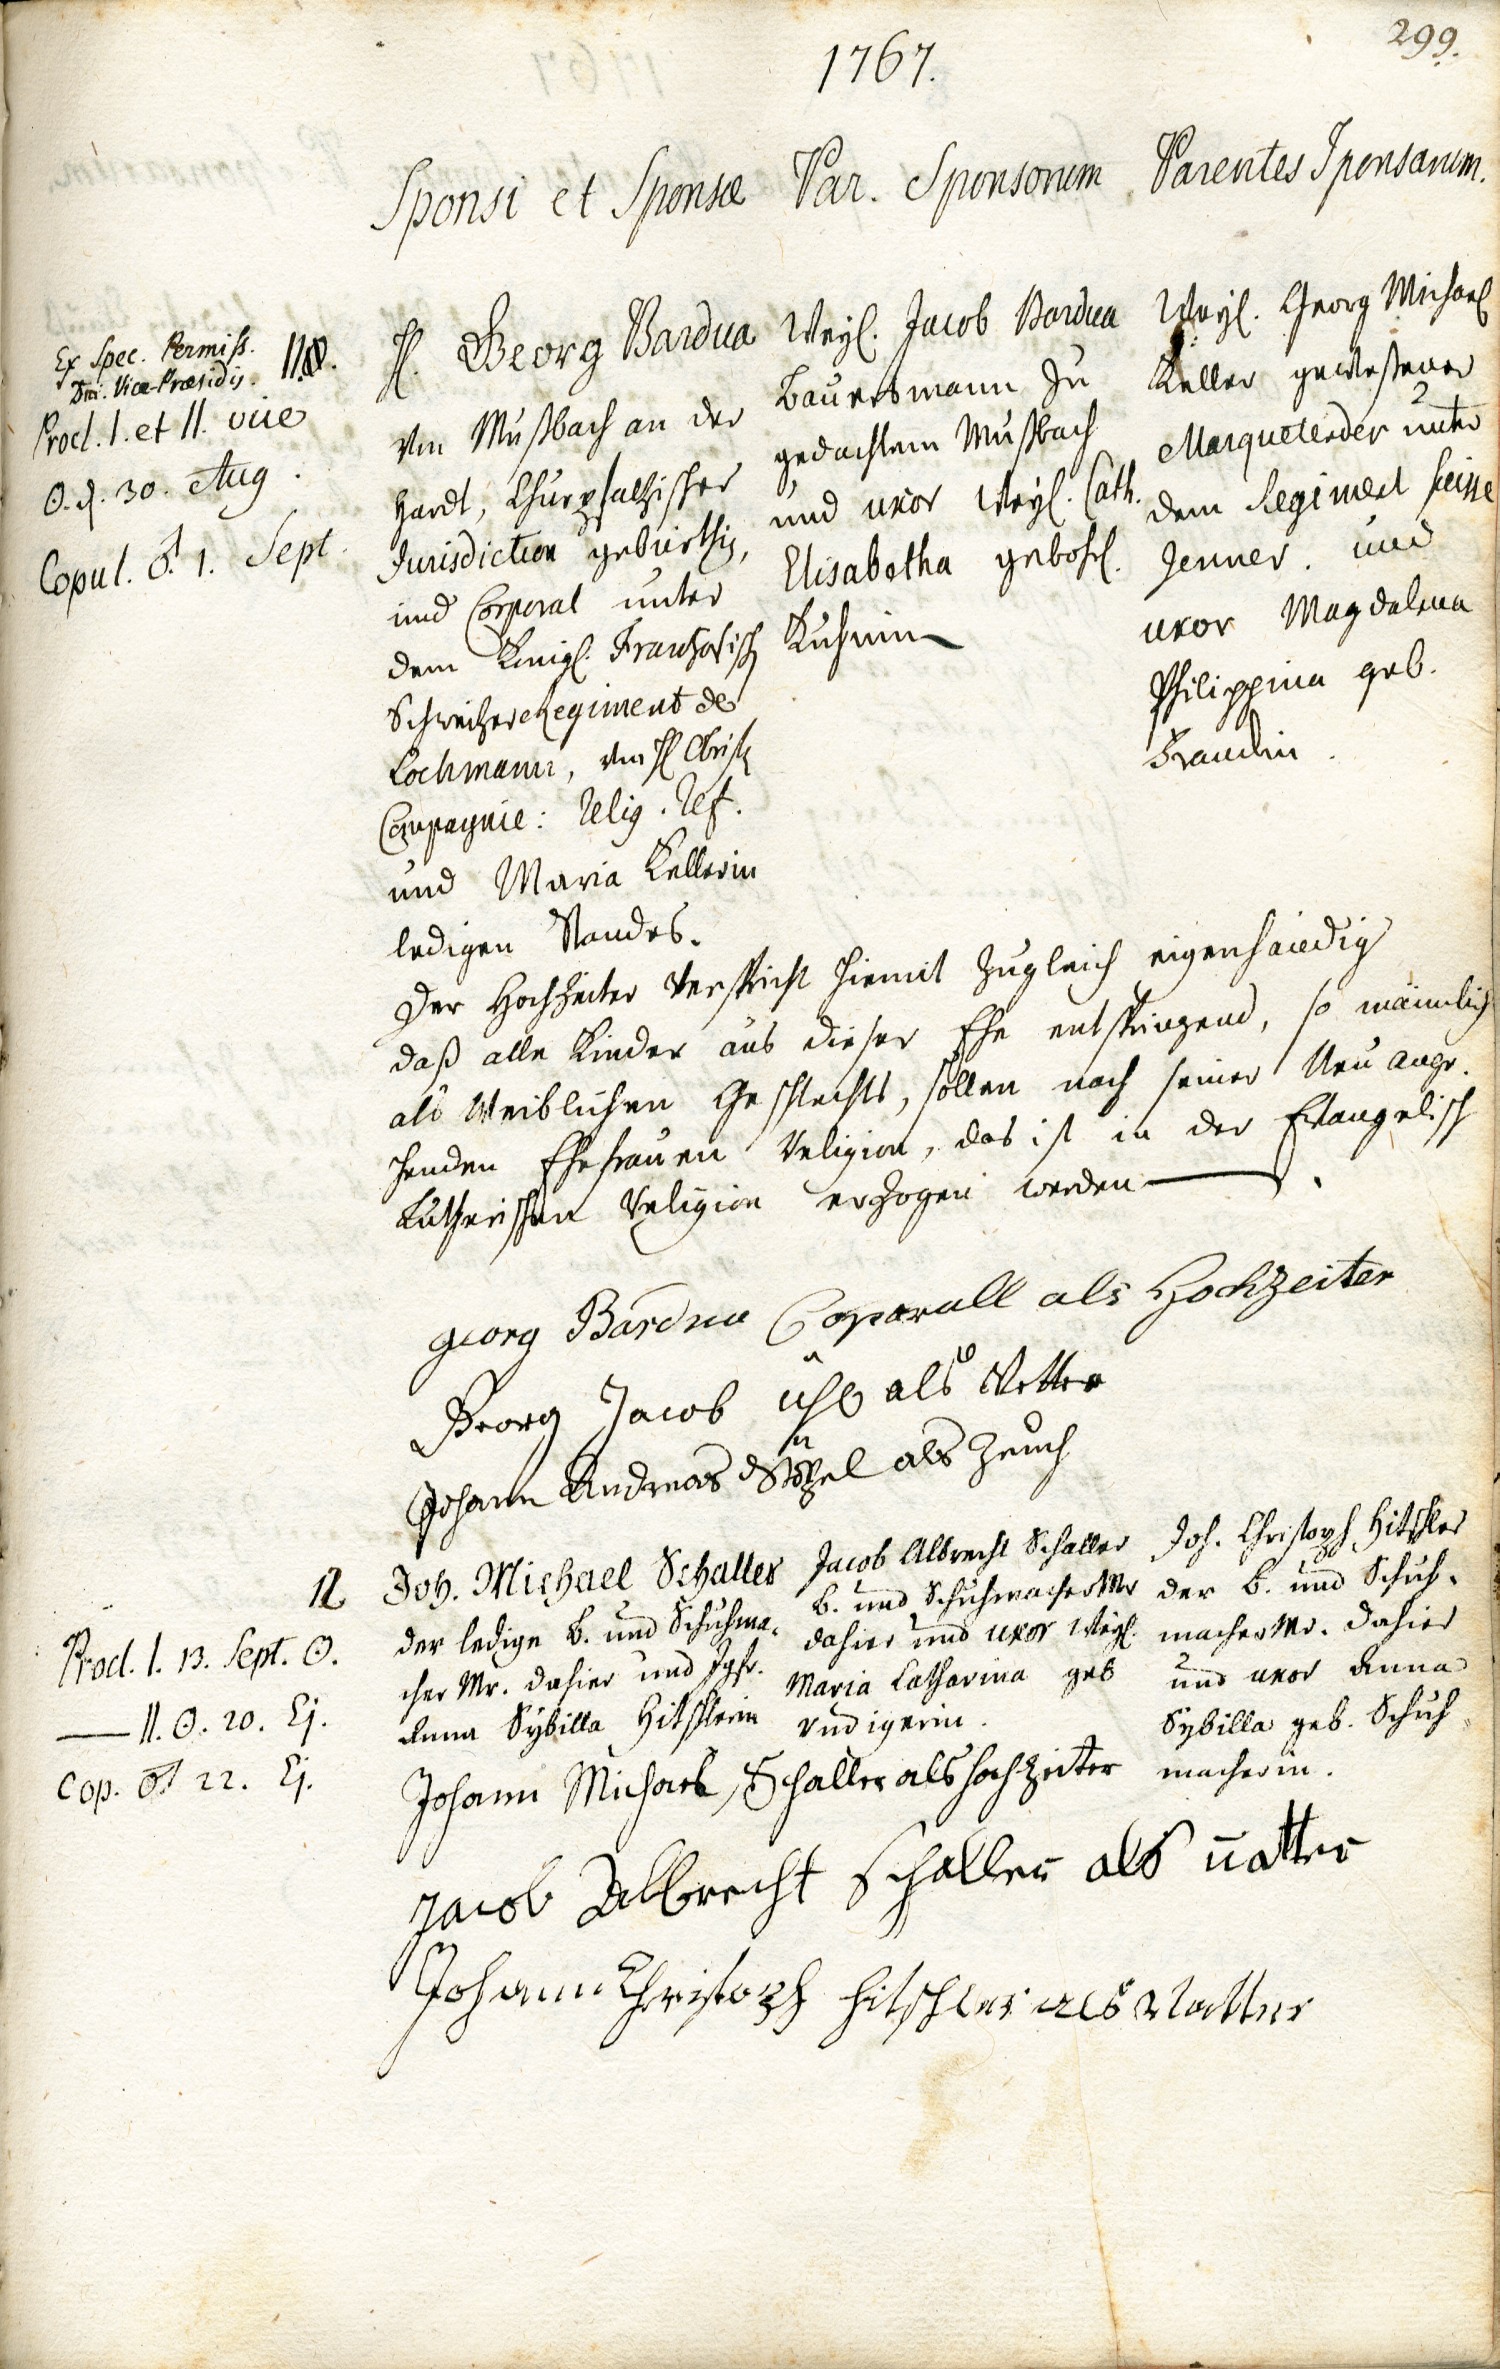 299.
1767.
Sponsi et Sponsæ
Par. Sponsorum
Parentes Sponsarum.
Ex Spec. Permiss.
Dni. Vice-Præsidis.
11.
Procl. I. et II. vice
30. Aug.
Copul. ♂. 1. Sept.
H. Georg Bardua
von Mußbach an der
Hardt, Churpfaltzischer
Jurisdiction gebürthig,
und Corporal unter
dem Königl. Frantzösisch
Schweitzer Regiment de
Lochmann, von H. Obrist
Compagnie: Relig. Ref.
und Maria Kellerin
ledigen Standes.
Weyl. Jacob Bardua
Bauersmann zu
gedachtem Mußbach
und uxor Weyl. Cath.
Elisabetha gebohl.
Kuhnin
Weyl. Georg Michael
Keller gewesener
Marquetender unter
dem Regiment suisse
Jenner. und
uxor Magdalena
Philippina geb.
Der Hochzeiter verspricht hiemit zugleich eigenhändig
daß alle Kinder aus dieser Ehe entspringend, so männlich
als Weiblichen Geschlechts, sollen nach seiner Neu ange-
henden Ehefrauen Religion, das ist in der Evangelisch
Lutherischen Religion erzogen werden.
georg Bardua Coporall als Hochzeiter
Georg Jacob als Vetter
Johann Andreas als Zeuch
12
Procl. I. 13. Sept. ☉.
— II. ☉. 20. Ej.
Cop. ♂ 22. Ej.
Joh. Michael Schaller
der ledige B. und Schuhma-
cher Mr. dahier und Jgfr.
Anna Sybilla Hitschlerin
Jacob Albrecht Schaller
B. und Schuhmacher Mr
dahier und uxor Weyl.
Maria Catharina geb
Rudigerin.
Joh. Christoph Hitschler
der B. und Schuh-
macher Mr. dahier
und uxor Anna
Sybilla geb. Schuh-
macherin.
Johann Michael Schaller als hochzeiter
Jacob Albrecht Schaller als vatter
Johann Christoph hitschler als Vatter